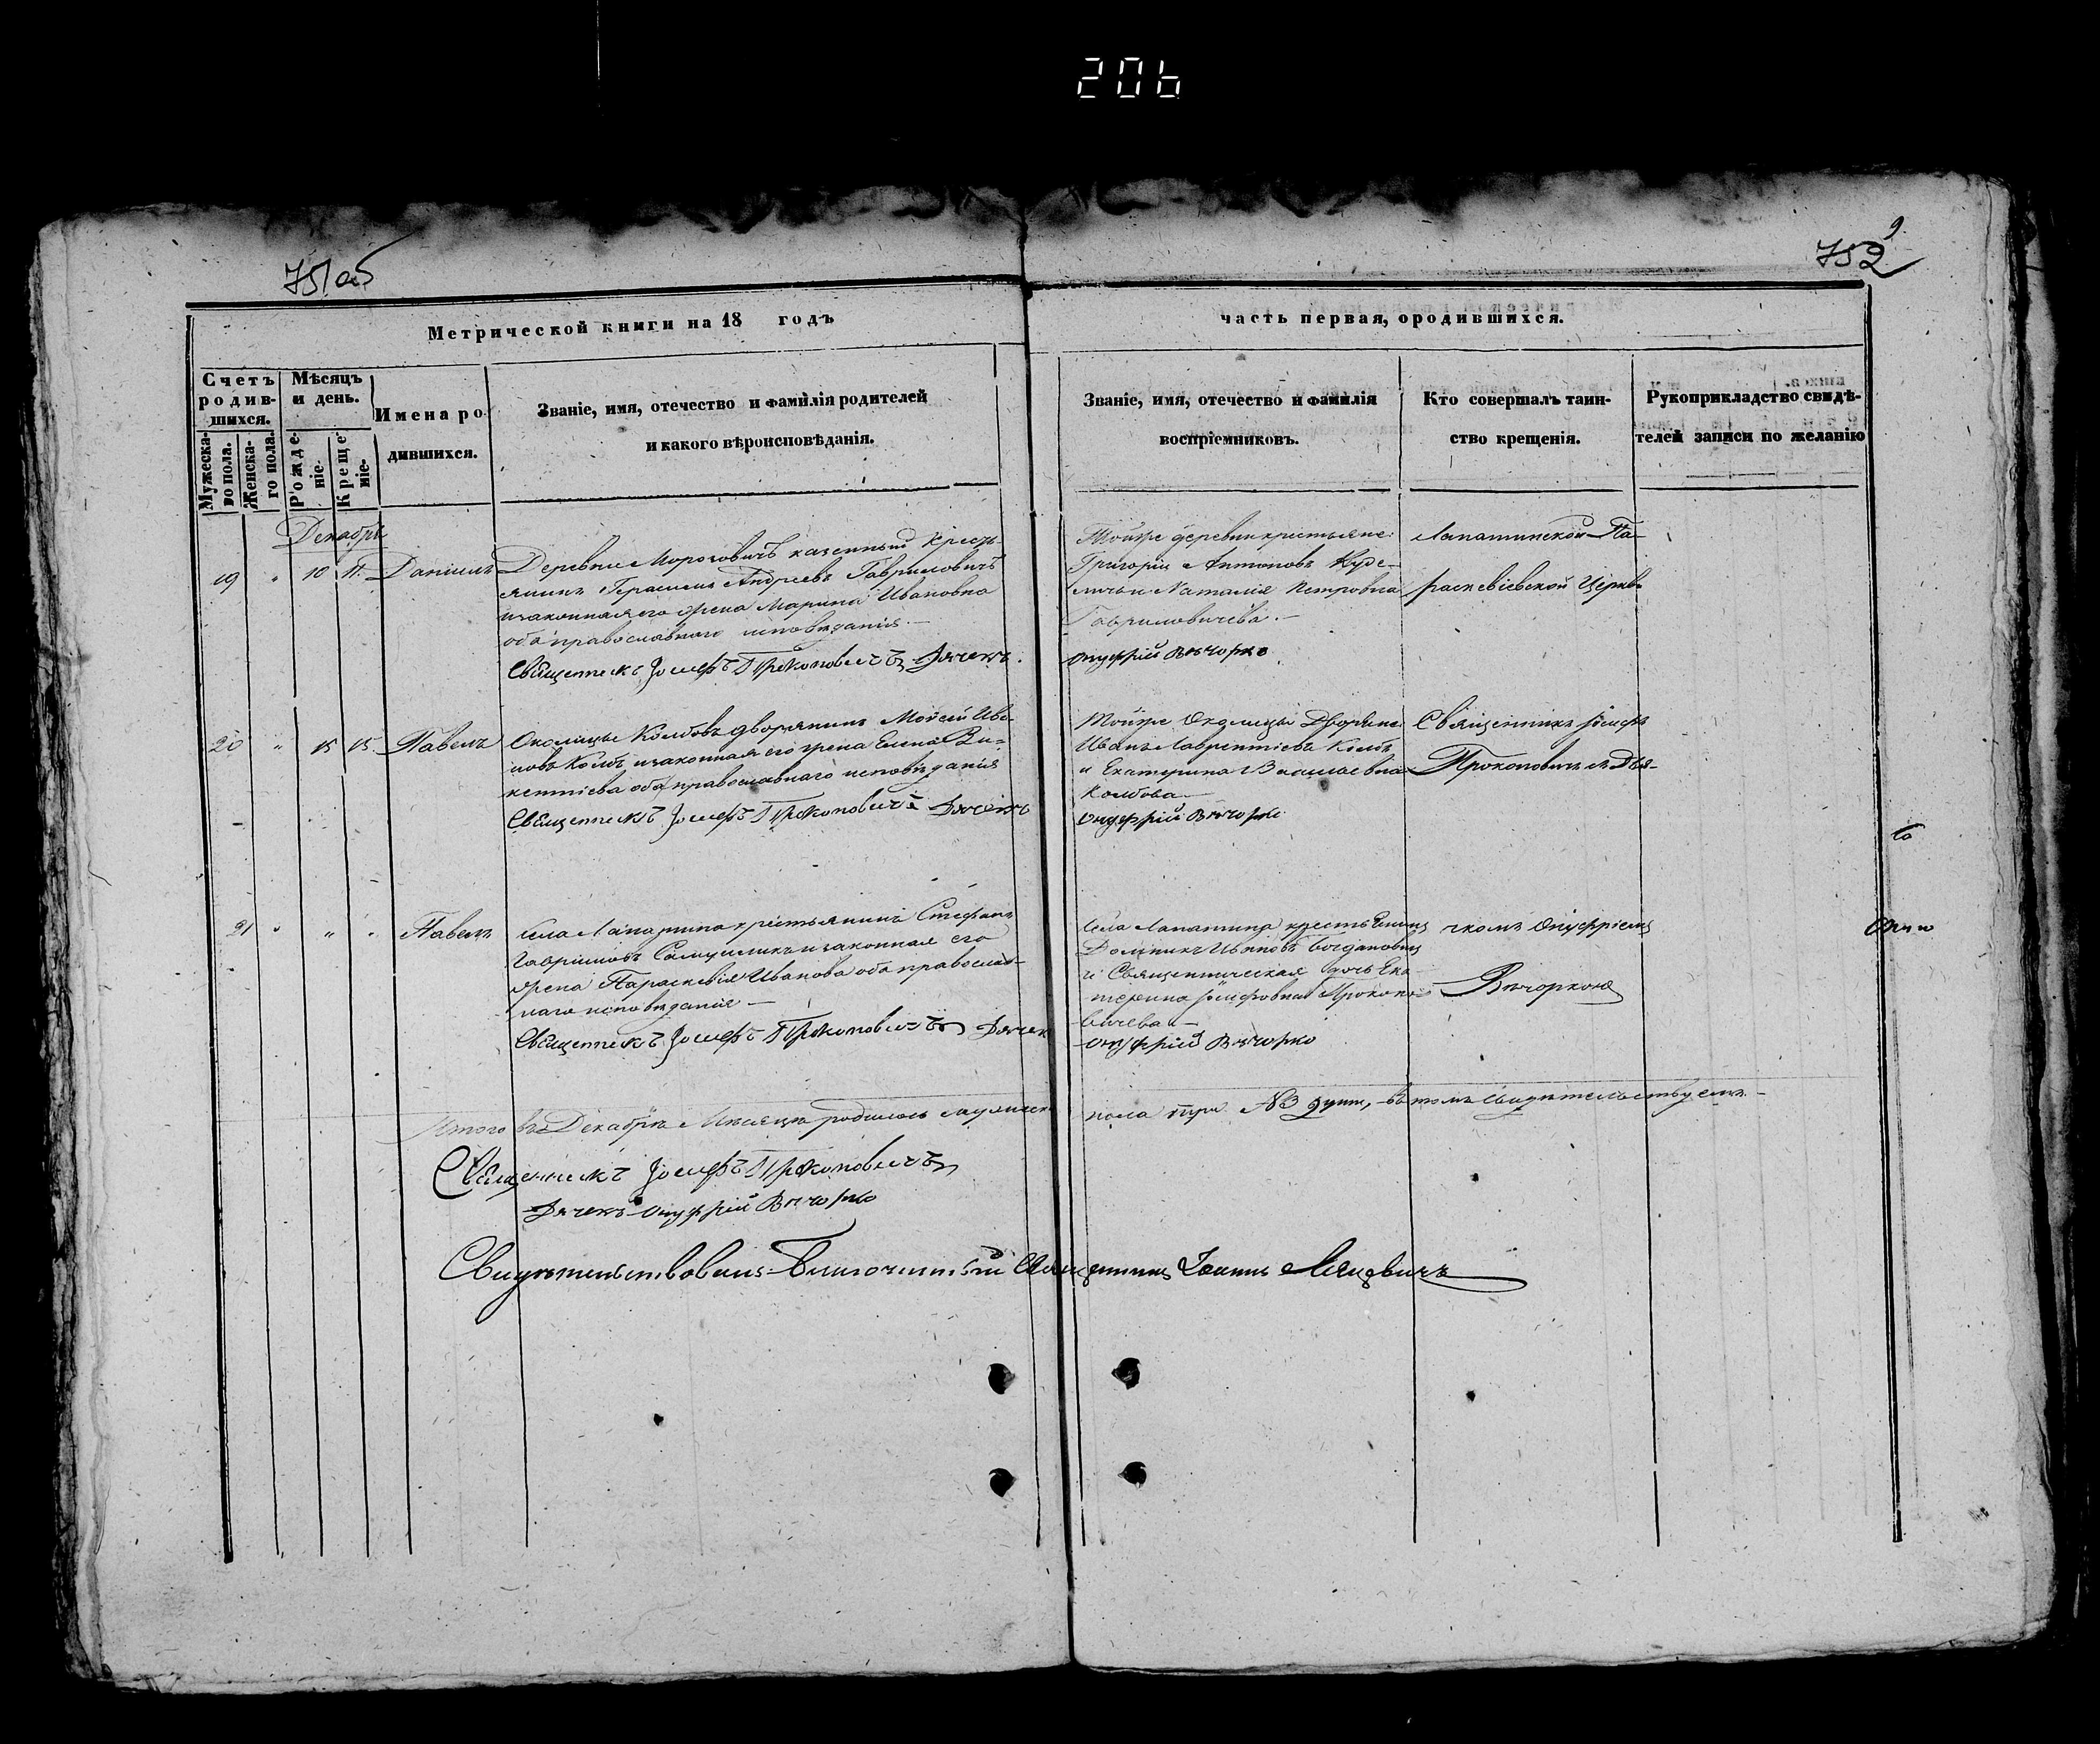 206
751об
752
9
Метрической книги на 18 годъ
часть первая, ородившихся.
Счетъ родившихся.
Мужескаго пола.
Женскаго пола.
Мѣсяцъ и день.
Рожденіе.
Крещеніе.
Имена родившихся.
Званіе, имя, отечество и фамилія родителей
и какого вѣроисповѣданія.
Званіе, имя, отечество и фамилія
воспріемниковъ.
Кто совершалъ таин-
ство крещенія.
Рукоприкладство свидѣ-
телей записи по желанію
Декабрь
19 " 10 11. Даніилъ
Деревни Мороговичъ казенный крест-
янинъ Герасимъ Андреевъ Гавриловичъ
изаконная его жена Марина Ивановна
оба православнаго исповѣданія.—
Священникъ Іосифъ Прокоповичъ Дячекъ
Тойже деревни крестьяне:
Григорій Антоновъ
и Наталія Петровна
Гавриловичева.—
Онуфрій Вячорко
Лапатинской Па-
раскевіевской Церкви
20 " 15 15. Павелъ
Околицы Колбовъ дворянинъ Моисей Ива-
новъ Колбъ изаконная его жена Елена Ви-
кентіева оба православнаго исповѣданія
Священникъ Іосифъ Прокоповичъ Дячекъ
Тойже Околицы Дворяне
Иванъ Лаврентіевъ Колбъ
и Екатерина Васильевна
Колбова—
Онуфрій Вячорко
Священникъ Іосифъ
Прокоповичъ съ Дья-
21 " " " Павелъ
Села Лапатина крестьянинъ Стефанъ
Гавриловъ изаконная его
жена Параскевія Иванова оба православ-
наго исповѣданія—
Священникъ Іосифъ Прокоповичъ Дячек
Села Лапатина крестьянинъ
Доминикъ Ивановъ Богдановичъ
и Священническая дочь Ека-
терина Іосифовна Прокопо-
вичева—
Онуфрій Вячорко
чкомъ Онуфріемъ
Вячоркою
Итого въ Декабрѣ Мѣсяцѣ родилось мужеска
пола три №3 души, въ томъ свидѣтельствуемъ.—
Священникъ Іосифъ Прокоповичъ
Дячекъ Онуфрій Вячорко
Свидѣтельствовалъ Благочинный Священникъ Іоаннъ